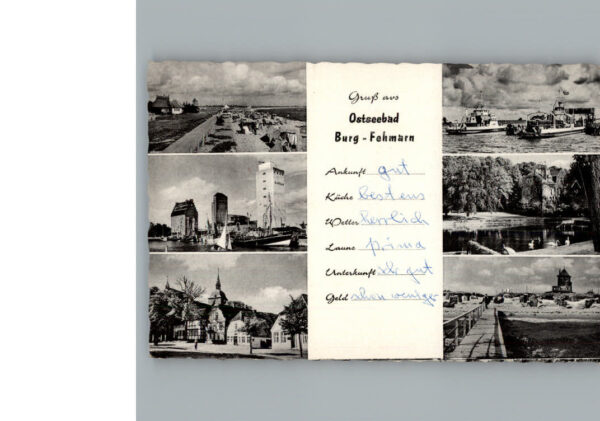 Gruß aus
Ostseebad
Burg - Fehmarn
Ankunft gut
Küche bestens
Wetter herrlich
Laune prima
Unterkunft s. gut
Geld schon weniger